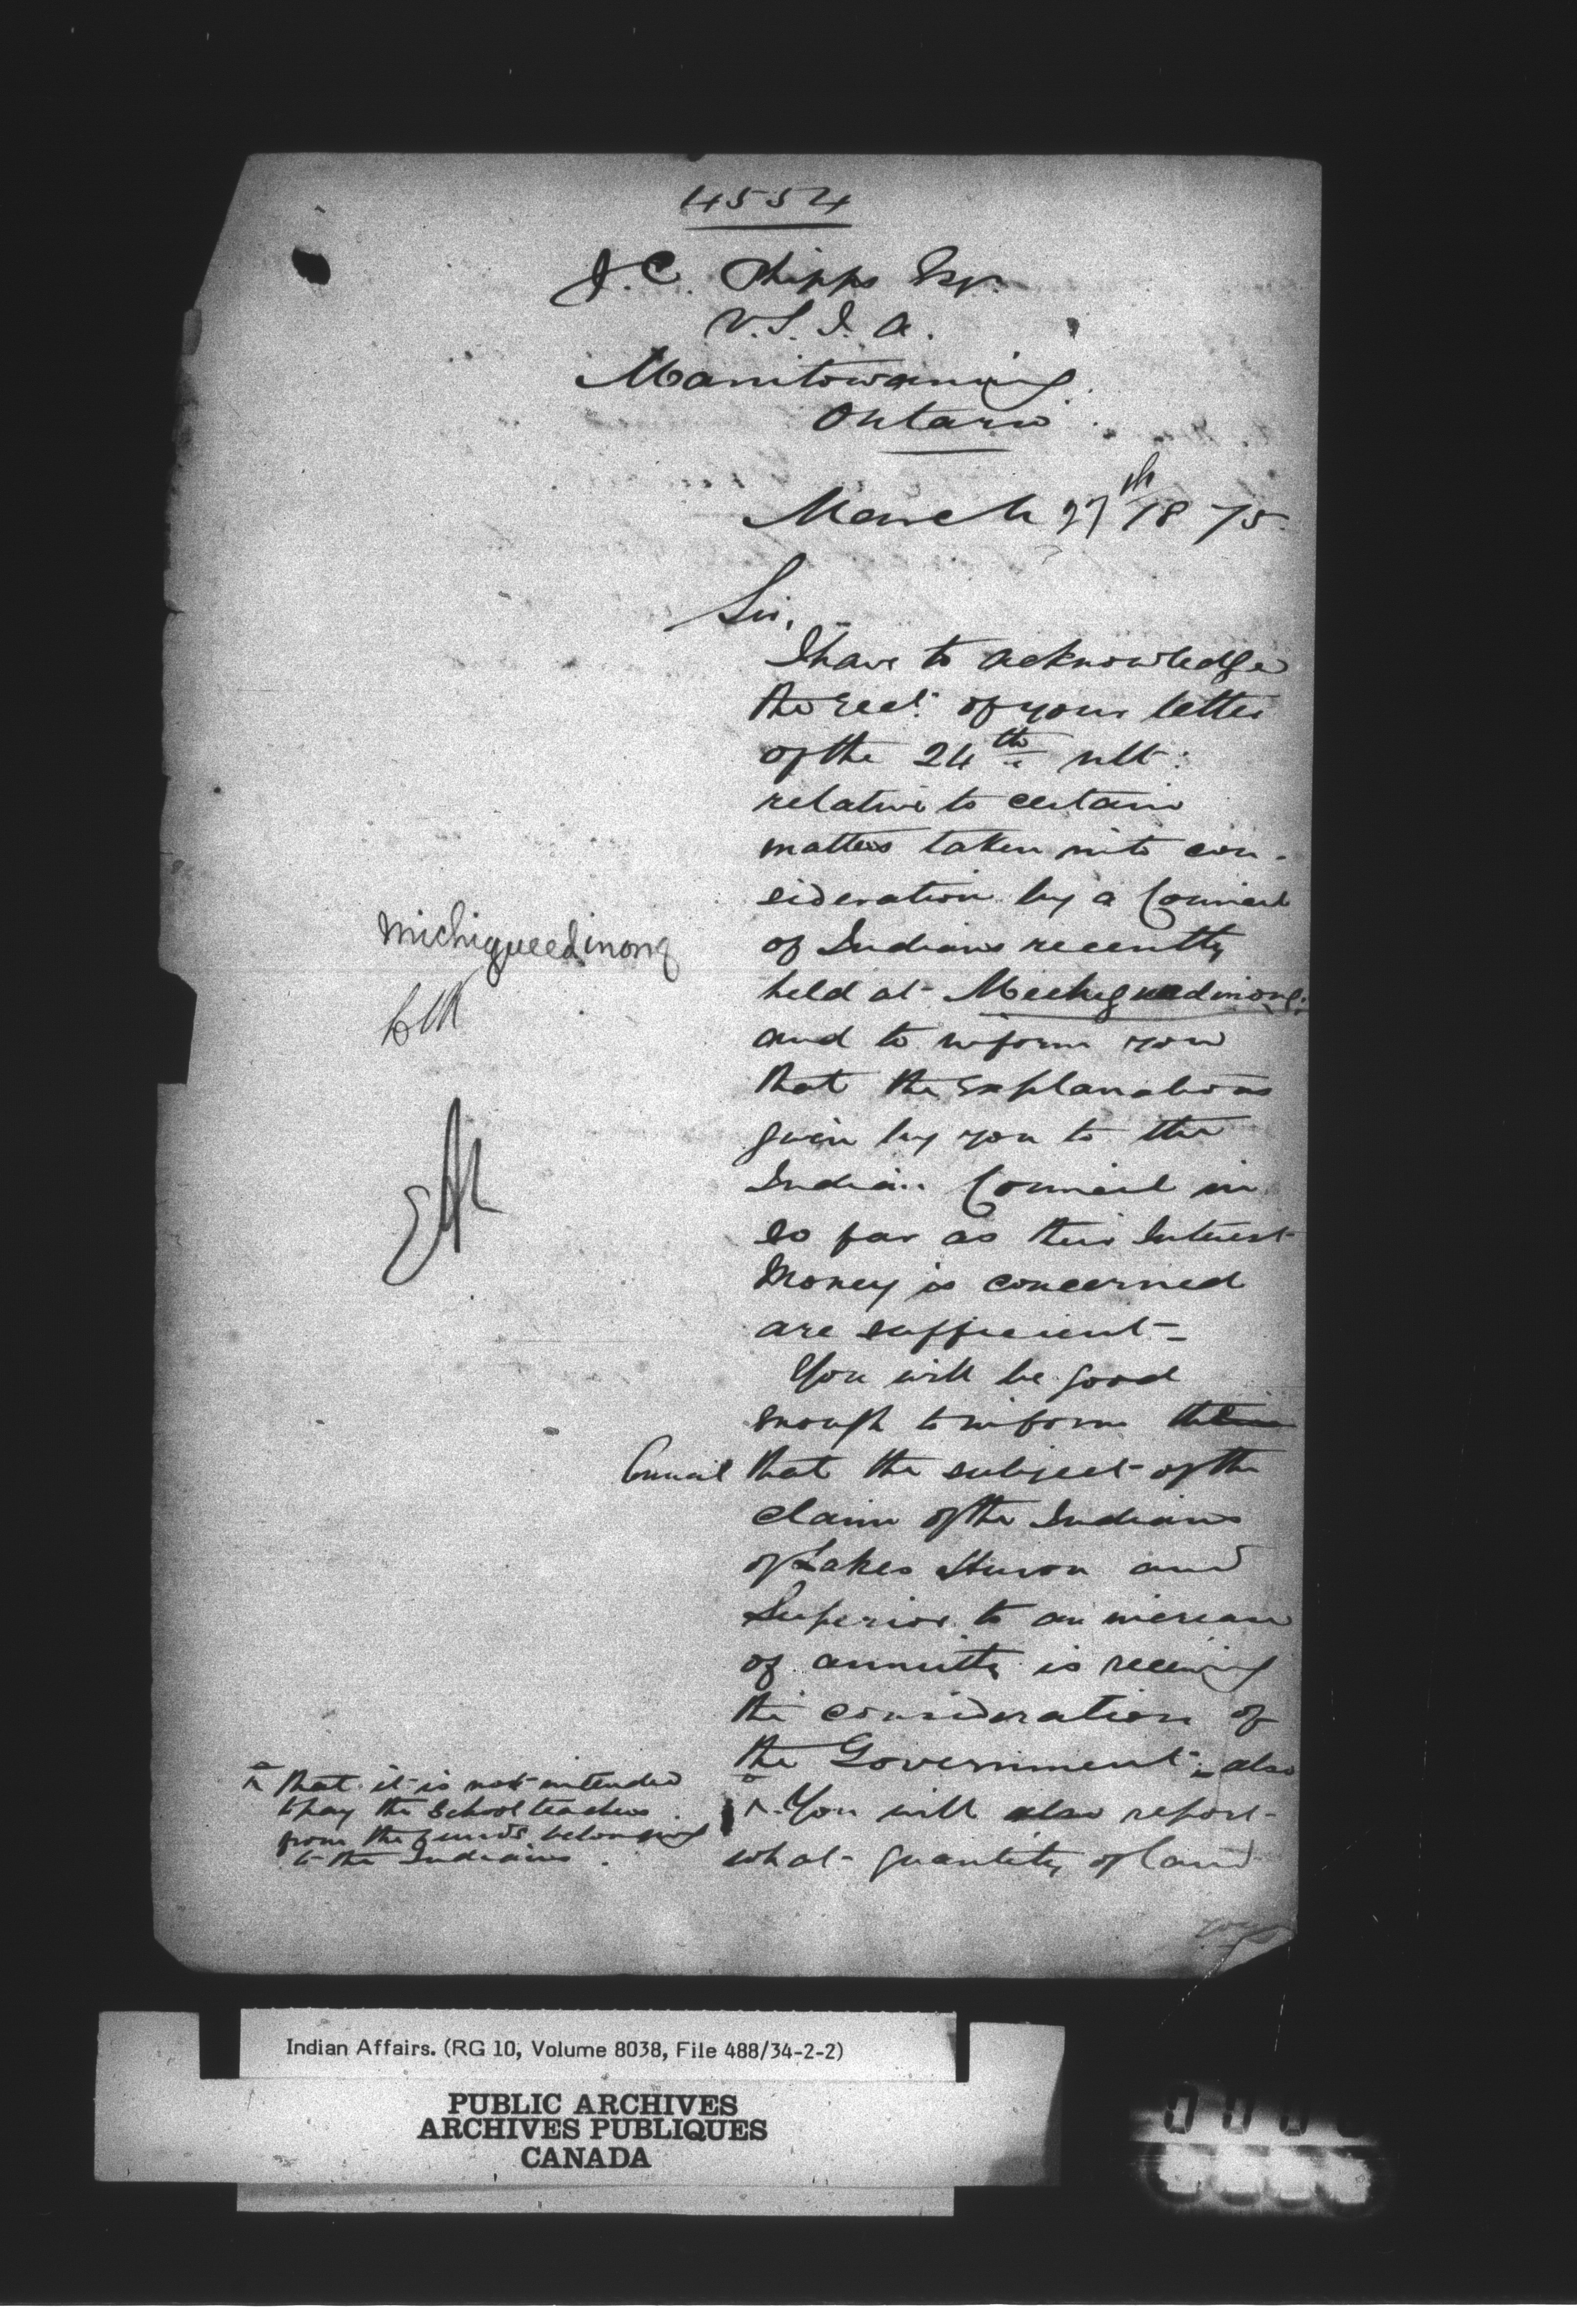 4554
J. C. Phipps Esqr.
V. S. I. A.
Manitowaning
Ontario
March 27th 1875
Sir,
I have to acknowledge
the rect. of your letter
of the 24th ult:
relative to certain
matters taken into con-
sideration by a Council
of Indians recently
Michigueedinong
held at Mechegueedinong:
and to inform you
that the explanations
given by you to the
Indian Council in
so far as their Interest
Money is concerned
are sufficient-
You will be good
enough to inform them
Council that the subject of the
claim of the Indians
of Lakes Huron and
Superior to an increase
of annuity is receiving
the consideration of
the Government; also
^ that it is not intended
to pay the School teachers
from the funds belonging
to the Indians.
^ You will also report
what quantity of land
Indian Affairs. (RG 10, Volume 8038, File 488/34-2-2)
PUBLIC ARCHIVES
ARCHIVES PUBLIQUES
CANADA